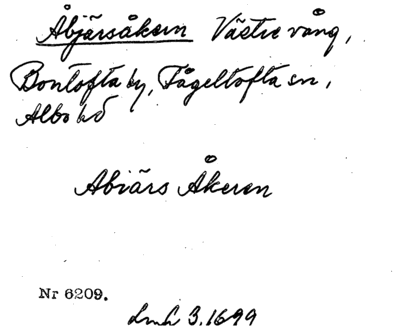 Åbjärsåkern Västre vång,
Bontofta by, Fågeltofta sn,
Albo hd
Abiärs Åkeren
Nr 6209.
Lmh 3.1699